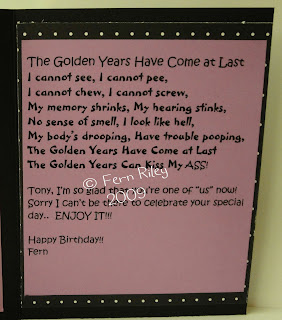 The Golden Years Have Come at Last
I cannot see, I cannot pee,
I cannot chew, I cannot screw,
My memory shrinks, My hearing stinks,
No sense of smell, I look like hell,
My body's drooping, Have trouble pooping,
The Golden Years Have Come at Last
The Golden Years Can Kiss My ASS!
Tony, I'm so glad that you're one of "us" now!
Sorry I can't be there to celebrate your special
day.. ENJOY IT!!!
Happy Birthday!!
Fern
© Fern Riley
2009